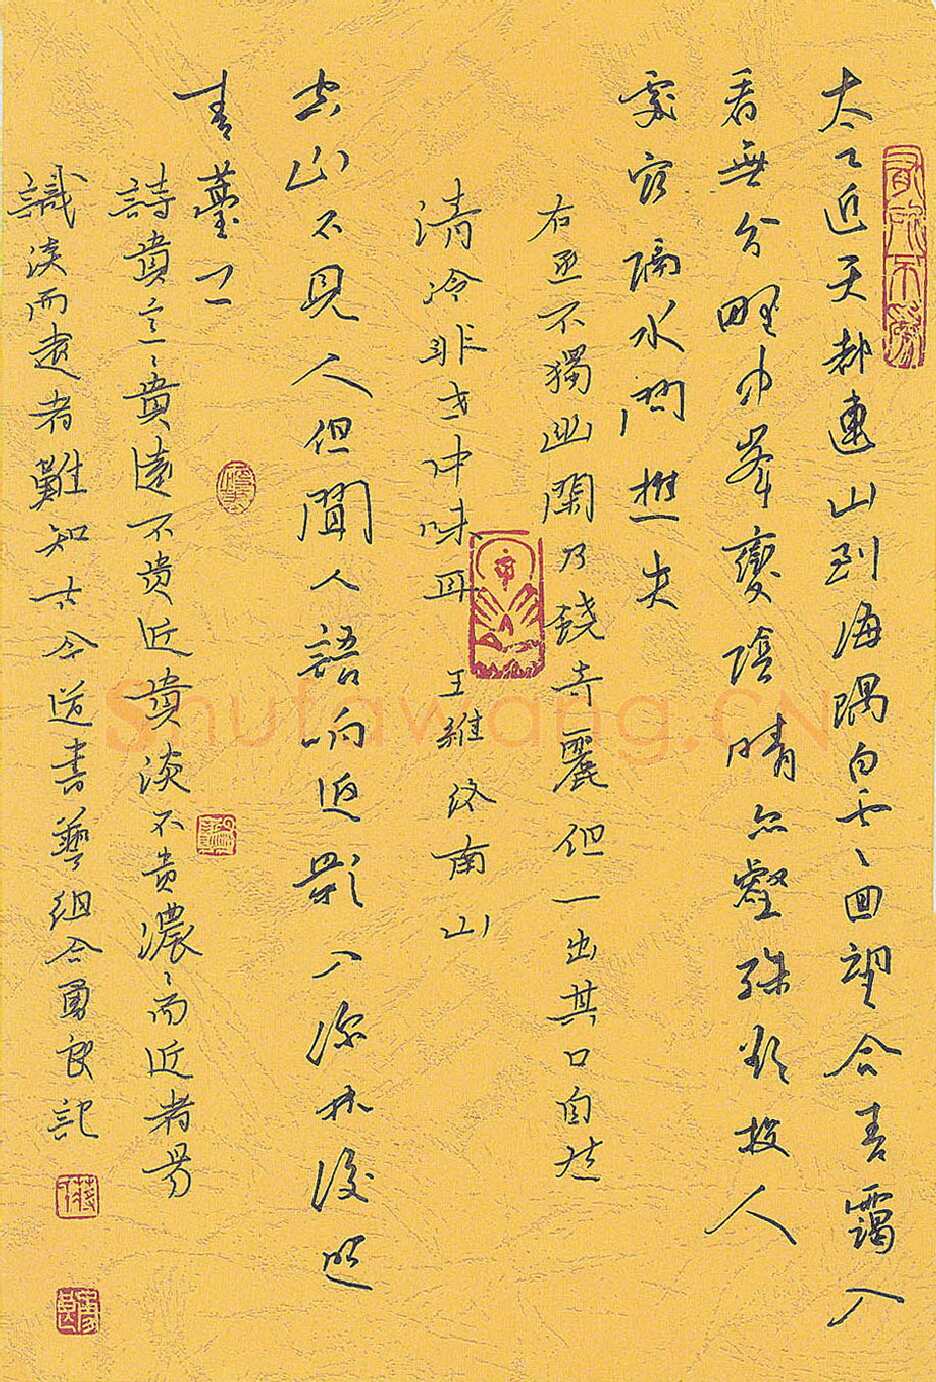 太乙近天都連山到海隅白雲、回望合青靄入
看無分野中峯變陰晴众壑殊欲投人
處宿隔水問樵夫
右丞不獨幽閑乃饒奇麗但一出其口自然
清冷非世中味耳 王維终南山
空山不見人但聞人語响返影入深林復照
青薹上
詩貴意、貴遠不贵近貴淡不贵濃、而近者易
識淡而遠者難知 古今道書藝组合勇良記
ShuFawang.CN